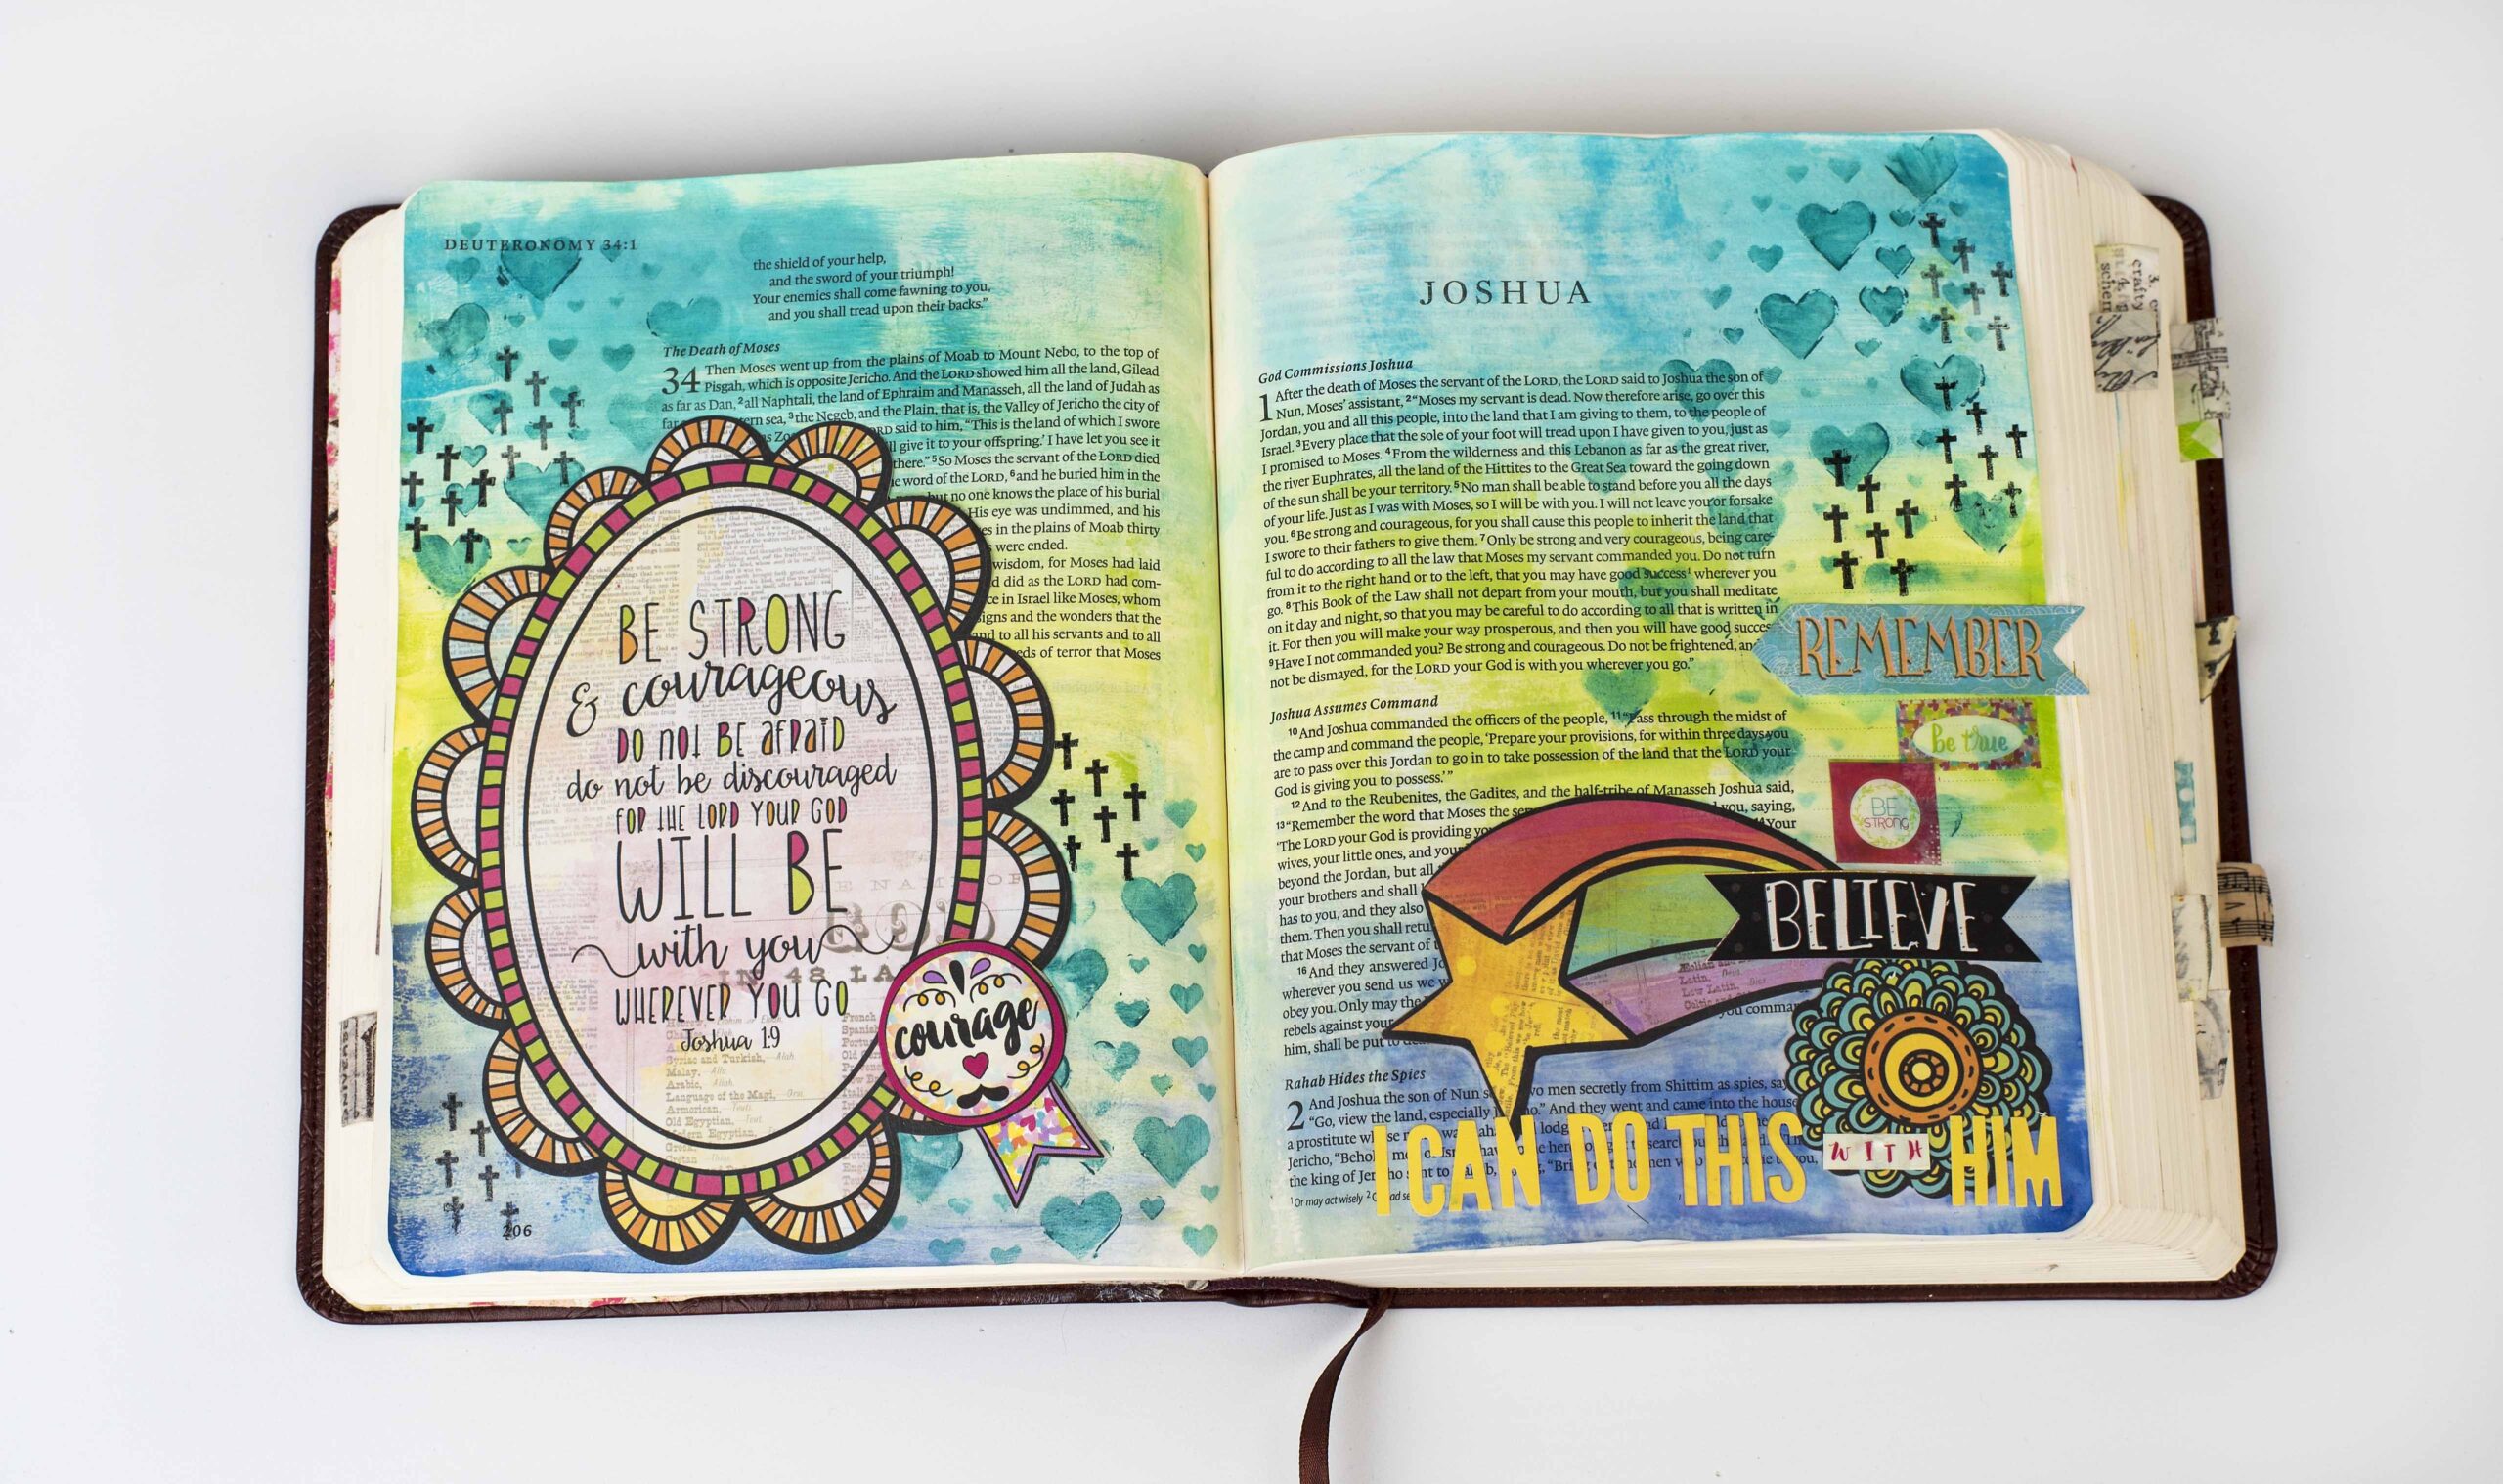 DEUTERONOMY 34:1
the shield of your help,
and the sword of your triumph!
Your enemies shall come fawning to you,
and you shall tread upon their backs.”
The Death of Moses
34 Then Moses went up from the plains of Moab to Mount Nebo, to the top of
Pisgah, which is opposite Jericho. And the LORD showed him all the land, Gilead
as far as Dan, 2 all Naphtali, the land of Ephraim and Manasseh, all the land of Judah as
far sea, 3 the Negeb, and the Plain, that is, the Valley of Jericho the city of
said to him, “This is the land of which I swore
give it to your offspring.’ I have let you see it
there.” 5 So Moses the servant of the LORD died
word of the LORD, 6 and he buried him in the
but no one knows the place of his burial
His eye was undimmed, and his
in the plains of Moab thirty
were ended.
wisdom, for Moses had laid
did as the LORD had com-
in Israel like Moses, whom
signs and the wonders that the
and to all his servants and to all
of terror that Moses
BE STRONG
& courageous
DO NOT BE AFRAID
do not be discouraged
FOR THE LORD YOUR GOD
WILL BE
with you
WHEREVER YOU GO
Joshua 1:9
courage
IN 48 LA
Syriac and Turkish,
Malay,
Arabic,
Language of the Magi,
Armorican,
Old Egyptian,
Modern Egyptian,
206
JOSHUA
God Commissions Joshua
1 After the death of Moses the servant of the LORD, the LORD said to Joshua the son of
Nun, Moses’ assistant, 2 “Moses my servant is dead. Now therefore arise, go over this
Jordan, you and all this people, into the land that I am giving to them, to the people of
Israel. 3 Every place that the sole of your foot will tread upon I have given to you, just as
I promised to Moses. 4 From the wilderness and this Lebanon as far as the great river,
the river Euphrates, all the land of the Hittites to the Great Sea toward the going down
of the sun shall be your territory. 5 No man shall be able to stand before you all the days
of your life. Just as I was with Moses, so I will be with you. I will not leave you or forsake
you. 6 Be strong and courageous, for you shall cause this people to inherit the land that
I swore to their fathers to give them. 7 Only be strong and very courageous, being care-
ful to do according to all the law that Moses my servant commanded you. Do not turn
from it to the right hand or to the left, that you may have good success1 wherever you
go. 8 This Book of the Law shall not depart from your mouth, but you shall meditate
on it day and night, so that you may be careful to do according to all that is written in
it. For then you will make your way prosperous, and then you will have good succes
9 Have I not commanded you? Be strong and courageous. Do not be frightened, an
not be dismayed, for the LORD your God is with you wherever you go.”
REMEMBER
Be true
BE
STRONG
Joshua Assumes Command
10 And Joshua commanded the officers of the people, 11 “Pass through the midst of
the camp and command the people, ‘Prepare your provisions, for within three days you
are to pass over this Jordan to go in to take possession of the land that the LORD your
God is giving you to possess.’”
12 And to the Reubenites, the Gadites, and the half-tribe of Manasseh Joshua said,
13 “Remember the word that Moses the you, saying,
‘The LORD your God is providing Your
wives, your little ones, and your
beyond the Jordan, but all
your brothers and shall
has to you, and they also
them. Then you shall
that Moses the servant of
16 And they answered
wherever you send us
obey you. Only may the
rebels against your
him, shall be put to
BELIEVE
Latin,
Low Latin,
Rahab Hides the Spies
2 And Joshua the son of Nun men secretly from Shittim as spies,
“Go, view the land, especially And they went and came into the house
a prostitute
Jericho,
the king of
1 Or may act wisely 2
I CAN DO THIS WITH HIM
3.
crafty
schem